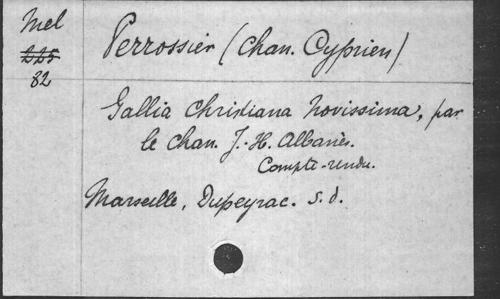 Mel
225
82
Perrossier (Chan. Cyprien)
Gallia Christiana Novissima, par
le Chan. J.-H. Albanès.
Compte-rendu.
Marseille, Dupeyrac. s.d.